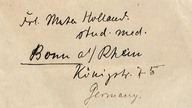 Frl. Meta Holland.
stud. med.
Bonn a/ Rhein
Königstr. 75
Germany.